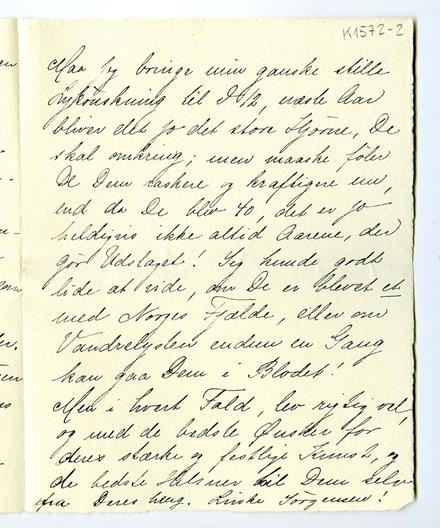 K1572-2
Maa jeg bringe min ganske stille
Lykønskning til d 9/2, næste Aar
bliver det jo det store Hjørne, De
skal omkring; men maaske føler
De Dem raskere og kraftigere nu,
end da De blev 40, det er jo
heldigvis ikke altid Aarene, der
gør Udslaget! Jeg kunde godt
lide at vide, om De er blevet et
med Norges Fjælde, eller om
Vandrelysten endnu en Gang
kan gaa Dem i Blodet!
Men i hvert Fald, lev rigtig vel,
og med de bedste Ønsker for
deres stærke og festlige Kunst, og
de bedste Hilsner til Dem selv
fra Deres heng. Linke Jørgensen!